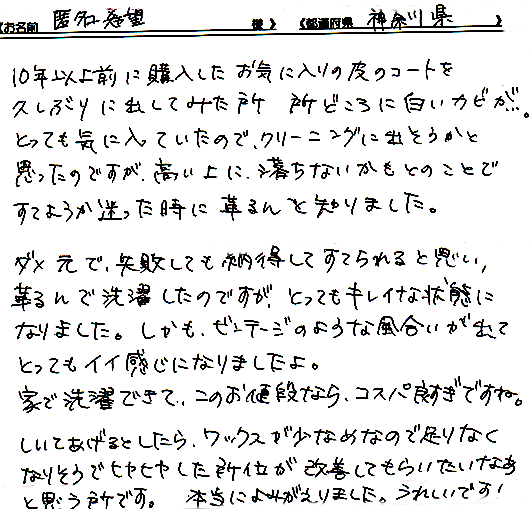 《お名前 匿名希望 様》《都道府県 神奈川県 》
10年以上前に購入したお気に入りの皮のコートを
久しぶりに出してみた所 所どころに白いカビが。
とっても気に入ていたので、クリーニングに出そうかと
思ったのですが、高い上に、落ちないかもとのことで
すてようか迷った時に革るんと知りました。
ダメ元で、失敗しても納得してすてられると思い、
革るんで洗濯したのですが、とってもキレイな状態に
なりました。しかも、ビンテージのような風合いが出て
とってもイイ感じになりましたよ。
家で洗濯できて、このお値段なら、コスパ良すぎですね。
しいてあげるとしたら、ワックスが少なめなので足りなく
なりそうでヒヤヒヤした所位が改善してもらいたいなあ
と思う所です。 本当によみがえりました。うれしいです!